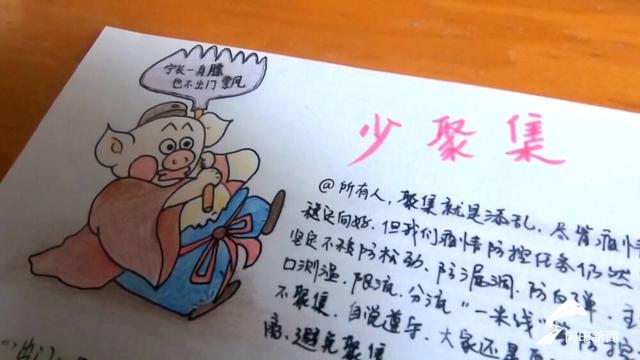 宁长一身膘
也不出门飘
少聚集
@所有人，聚集就是添乱，尽管疫情
稳定向好，但我们疫情防控任务仍然
坚定不移防松劲、防漏洞、防反弹，主
口测温、限流、分流“一米线”
不聚集，自觉遵守，大家还是
离，避免聚集